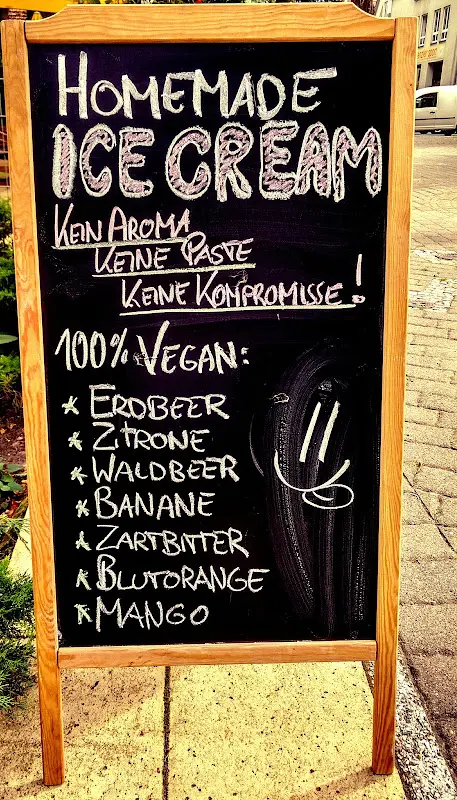 HOMEMADE
ICE CREAM
KEIN AROMA
KEINE PASTE
KEINE KOMPROMISSE!
100% VEGAN:
* ERDBEER
* ZITRONE
* WALDBEER
* BANANE
* ZARTBITTER
* BLUTORANGE
* MANGO